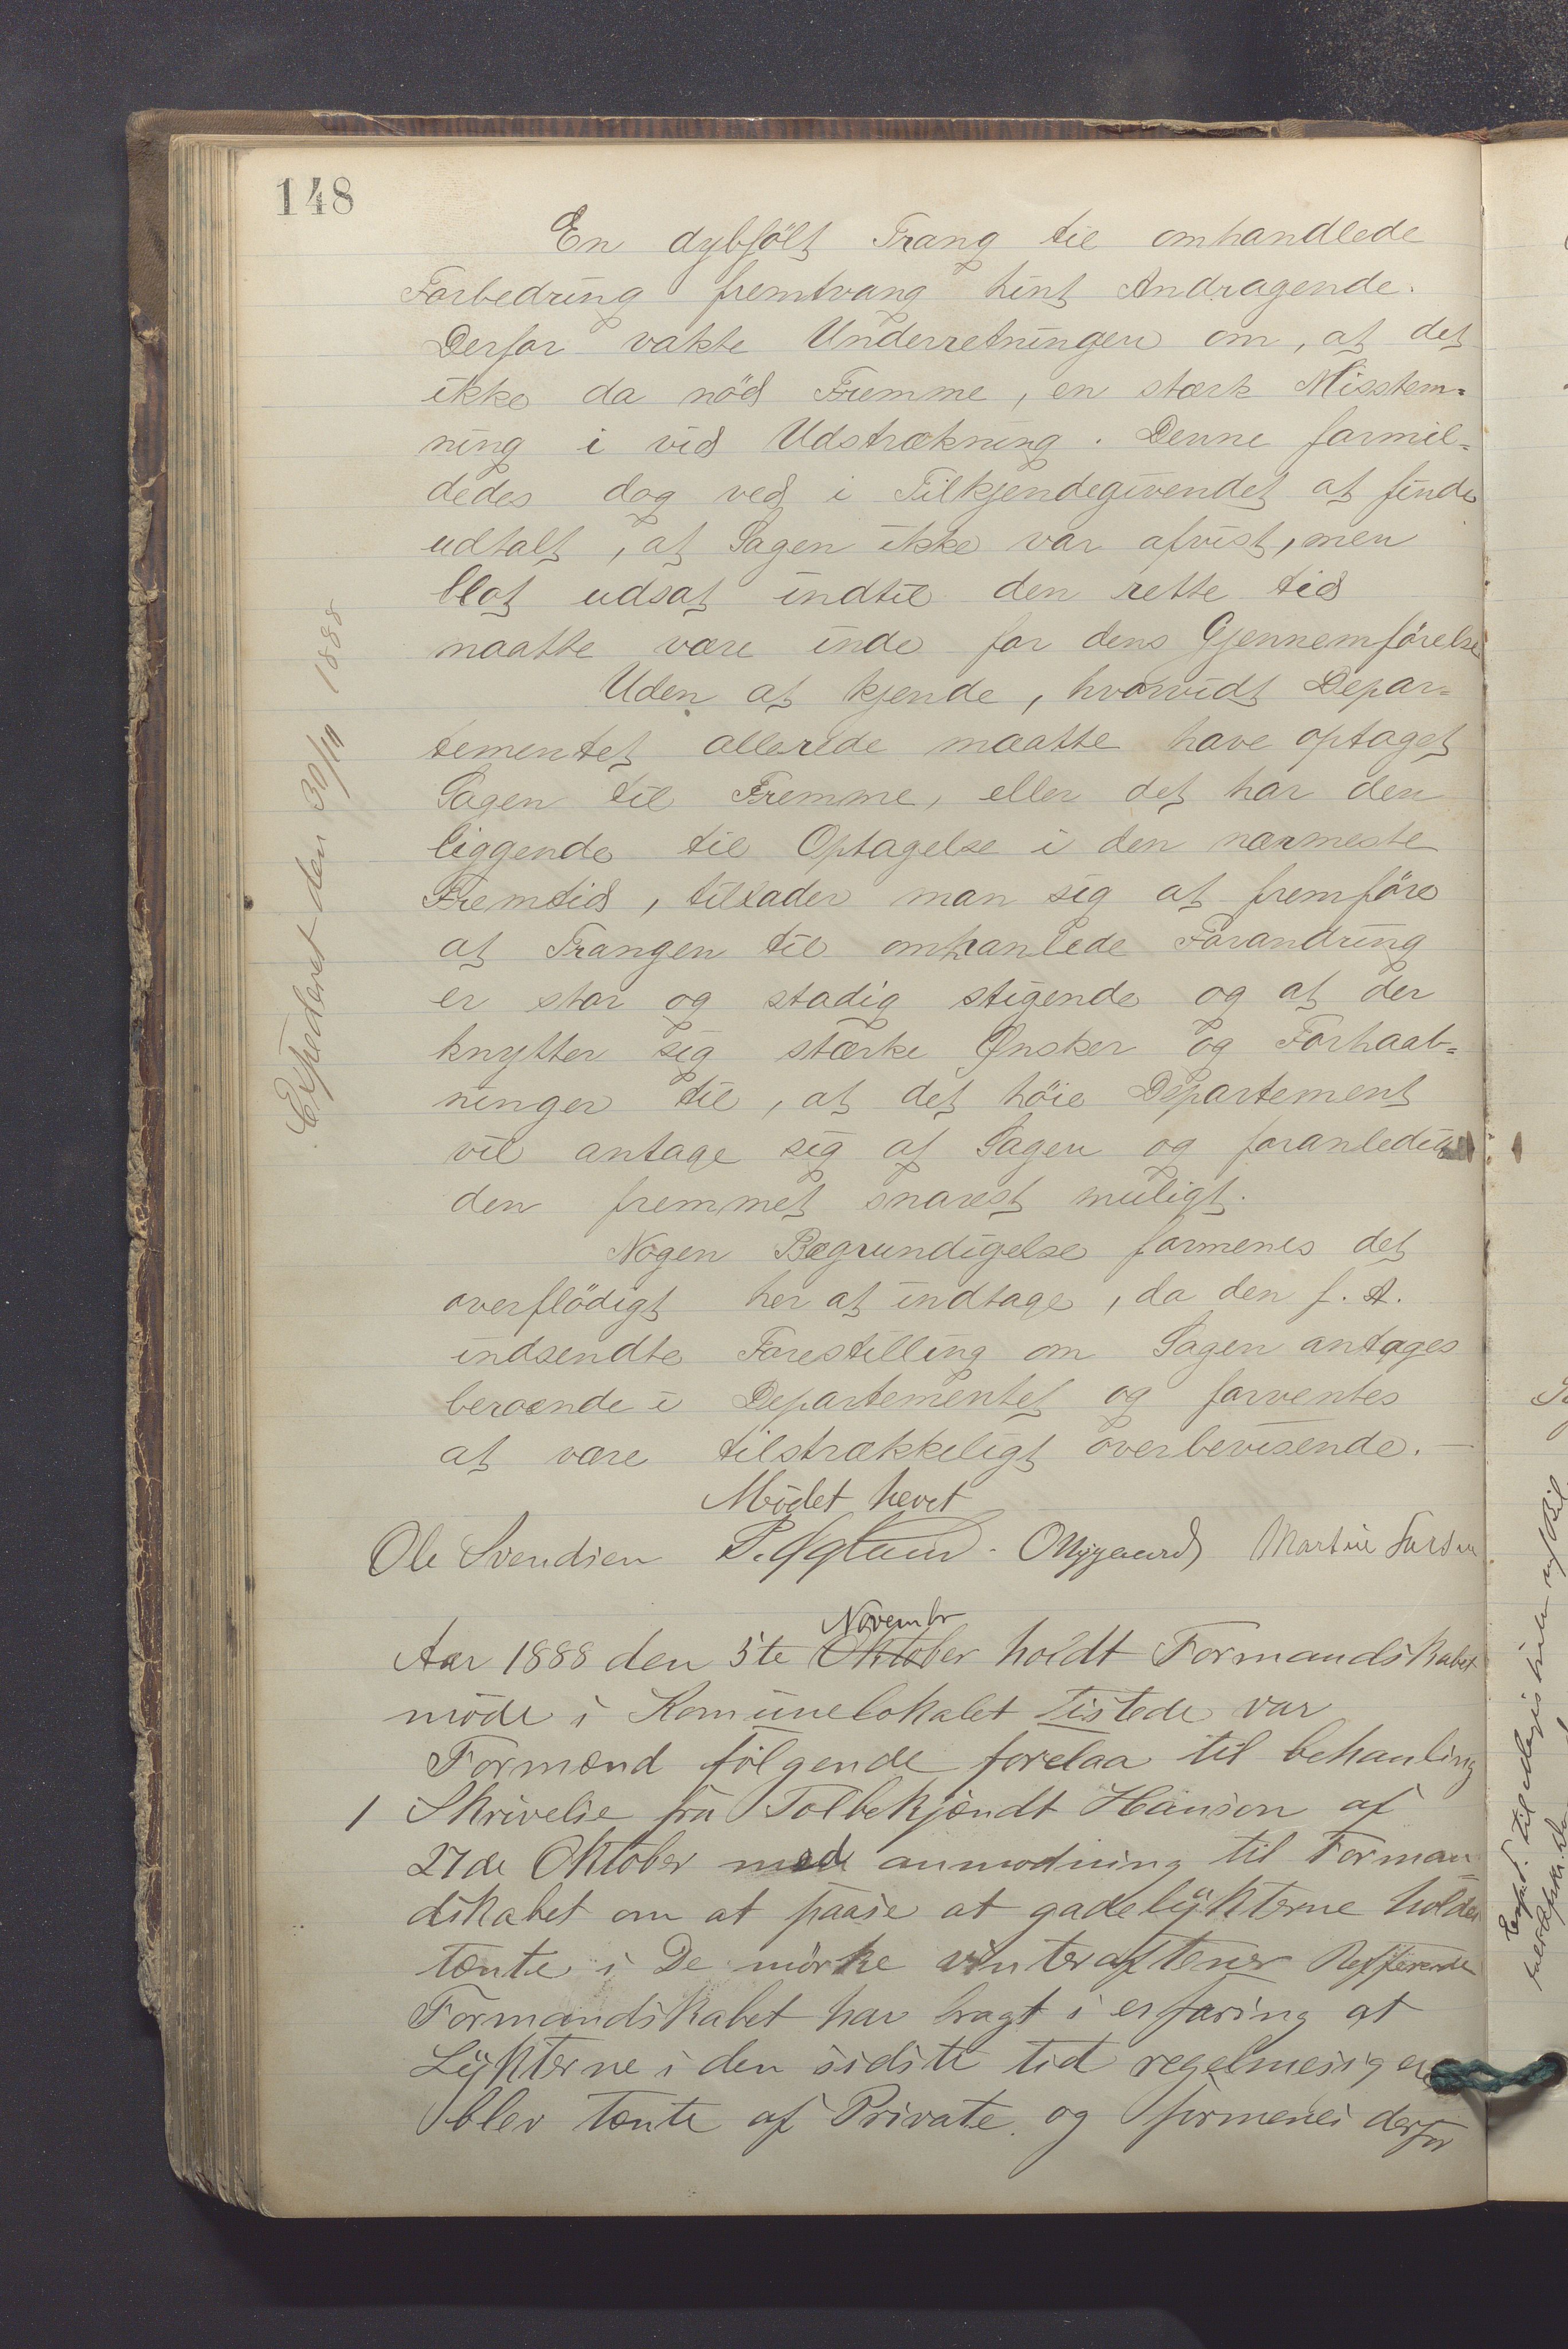 148
En dybfölt Trang til omhandlede
Forbedring fremtvang hint Andragende.
Derfor vakte Underretningen om, at det
ikke da nöd Fremme, en stærk Misstem=
ning i vid Udstrækning. Denne formil=
dedes dog ved i Tilkjendegivendet at finde
udtalt, at Sagen ikke var afvist, men
blot udsat indtil den rette tid
maatte være inde for dens Gjennemförelse
Uden at kjende, hvorvidt Depar=
tementet allerede maatte have optaget
Sagen til Fremme, eller det har den
liggende til Optagelse i den nærmeste
Fremtid, tillader man sig at fremföre
at Trangen til omhanlede Forandring
er stor og stadig stigende og at der
knytter sig stærke Ønsker og Forhaab=
ninger til, at det höie Departement
vil antage sig af Sagen og foranledige
den fremmet snarest muligt.
Nogen Begrundigelse formenes det
overflödigt her at indtage, da den f. A.
indsendte Forestilling om Sagen antages
beroende i Departementet og forventes
at være tilstrækkeligt overbevisende.—
Mödet hevet
Ole Svendsen P. Ogland. O Nygaard Martin
Expederet den 30/10 1888
Novembr
Aar 1888 den 5te Oktober holdt Formandskabet
möde i Komunelokalet tistede var
Formænd fölgende forelaa til behanling
1 Skrivelse fra Tolbekjændt Hansen af
27de Oktober med anmodning til Forman=
dskabet om at paase at gadelykterne holdes
tænte i De mörke vinteraftener
Formandskabet har bragt i erfaring at
Lykterne i den sidste tid regelmesig er
blev tænte af Private og formenes derfor